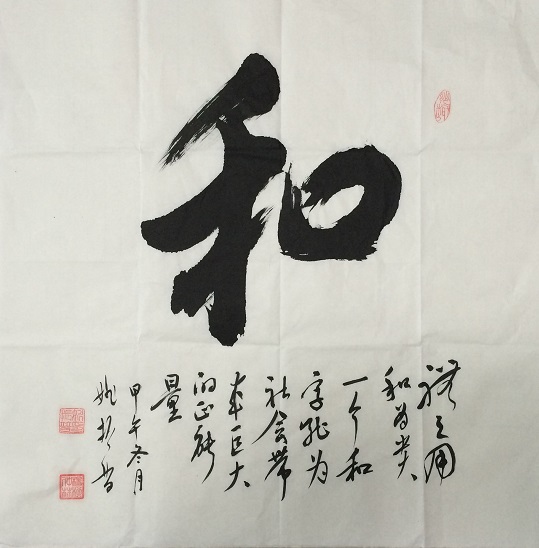 和
礼之用
和为贵
一个和
字能为
社会带
来巨大
的正能
量
甲午冬月